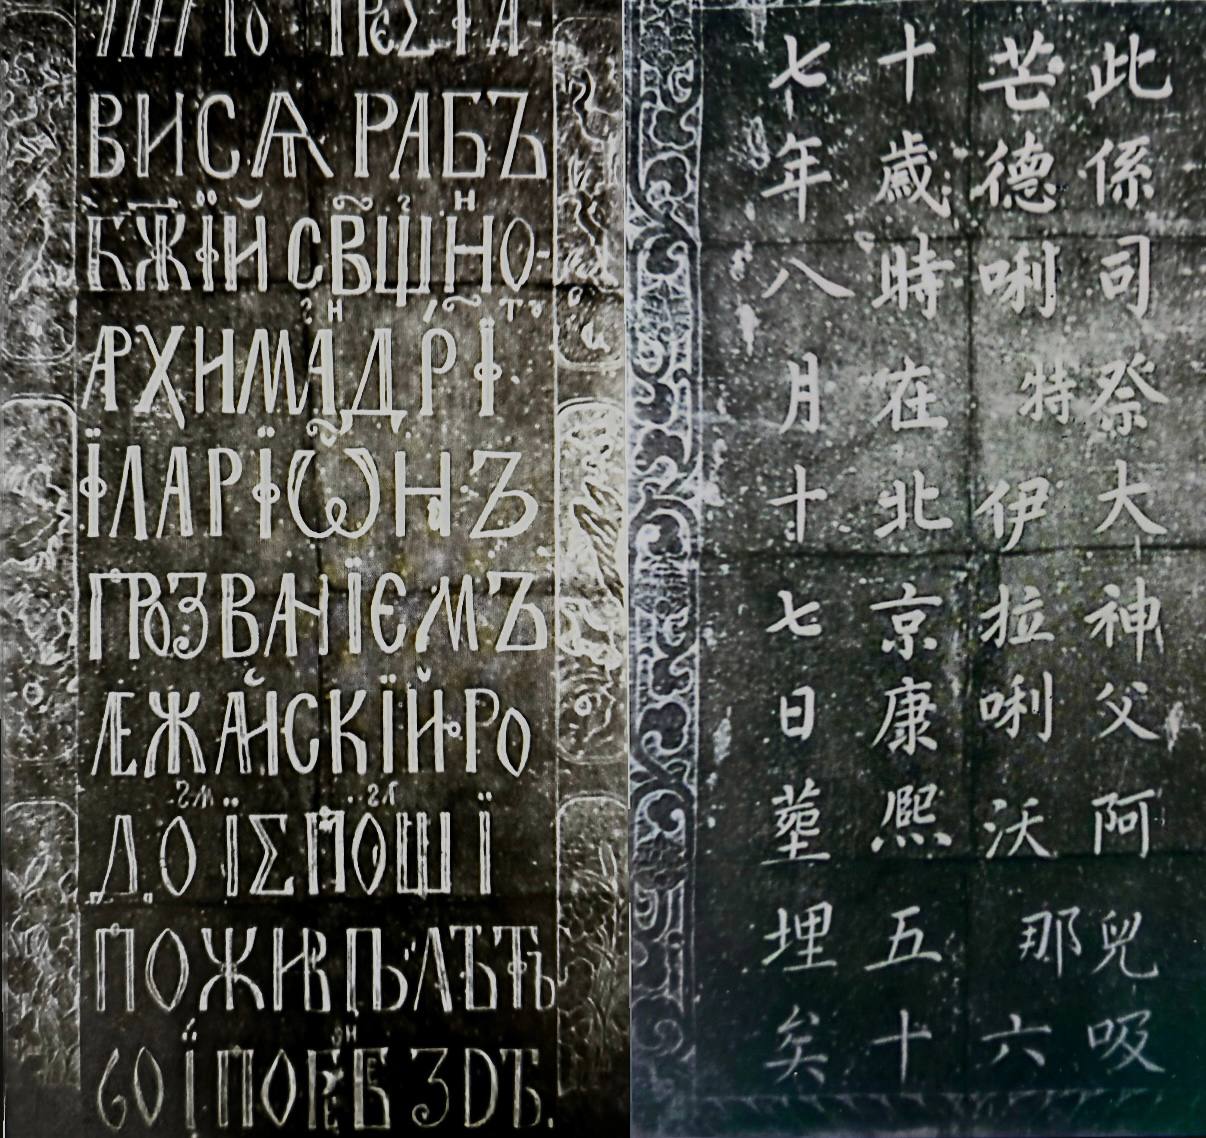 ПРЕСТА-
ВИСѦ РАБЪ
БЖ҃ІЙ СВ҃ЩННО-
АРХИМАНДРІТЪ
ІЛАРІѠНЪ
ПРОЗВАНІЕМЪ
ЛЕЖАЙСКІЙ РО
ДОМ ІЗ ПОЛШІ
ПОЖИВЪ ЛѢТЪ
60 І ПОГРЕБЕН ЗДѢ.
此係司祭大神父阿兒吸
芒德唎特伊拉唎沃那六
十歲時在北京康熙五十
七年八月十七日塟埋矣